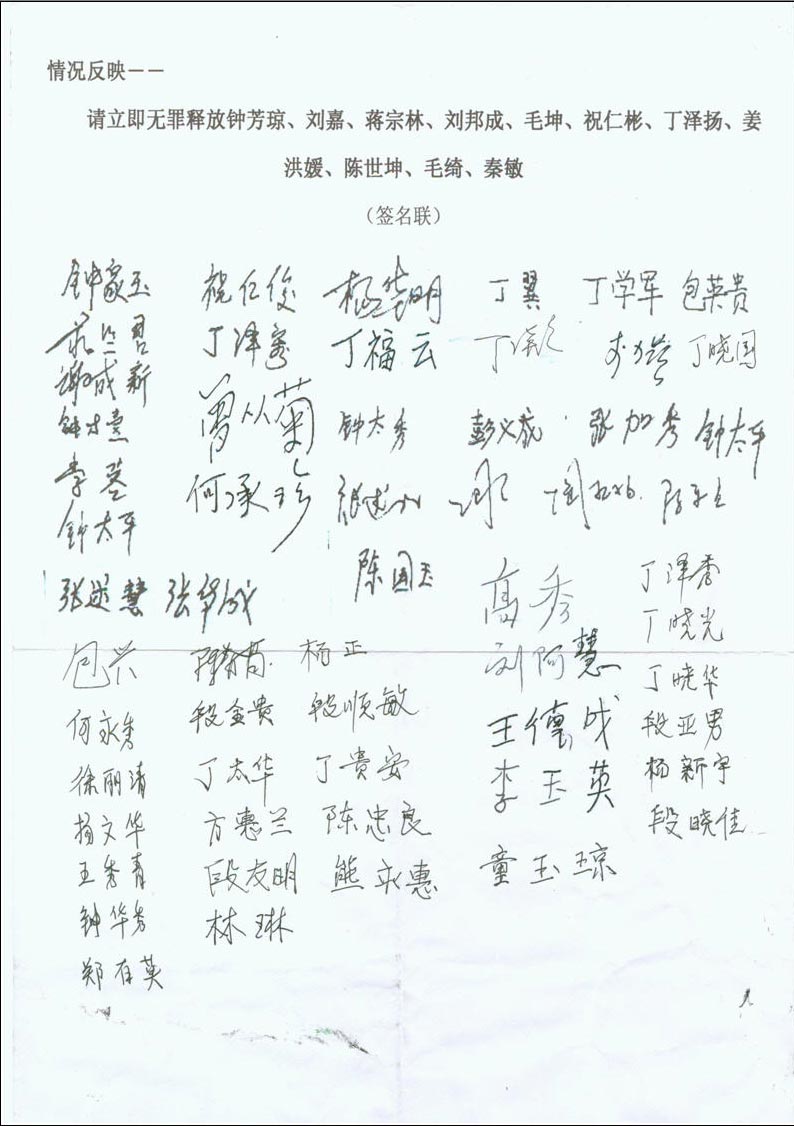 情况反映——
请立即无罪释放钟芳琼、刘嘉、蒋宗林、刘邦成、毛坤、祝仁彬、丁泽扬、姜
洪媛、陈世坤、毛绮、秦敏
（签名联）
钟家玉 祝仁俊 杨华明 丁翼 丁学军 包英贵
丁泽秀 丁福云 丁晓国
谢成新
曾从菊 钟太秀 彭义成 张加秀 钟太平
李莶 何承珍
钟太平
陈国玉 高秀 丁泽香
张述慧 张华成 丁晓光
包兴 杨正 刘阿慧 丁晓华
何永秀 段金贵 段顺敏 王德成 段亚男
徐丽清 丁太华 丁贵安 李玉英 杨新宇
杨文华 方惠兰 陈忠良 段晓佳
王秀青 段友明 熊永惠 童玉琼
钟华芳 林琳
郑存英